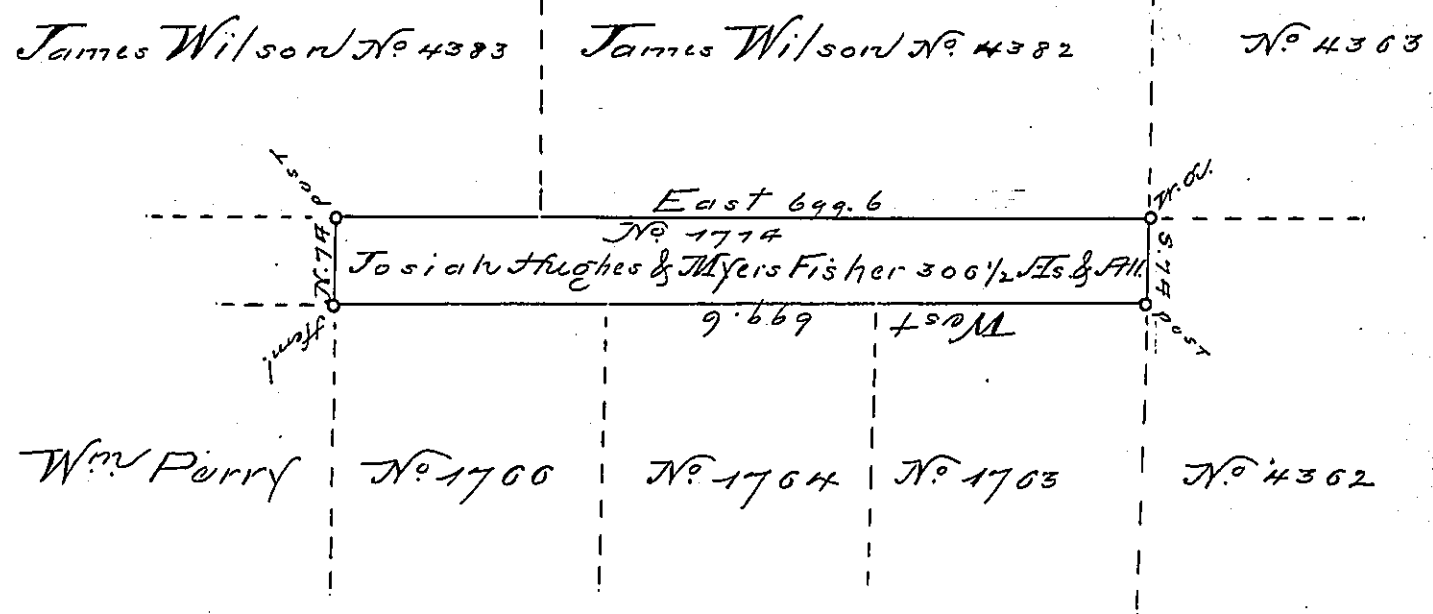 James Wilson No 4383
James Wilson No. 4382
No 4363
Post
East 699.6
W.O.
N.74
No 1714
S.74
Josiah Hughes & Myers Fisher 306 1/2 As. & All.
Hem.
West 699.6
Post
Wm Perry
No 1766
No. 1764
No 1763
No 4362